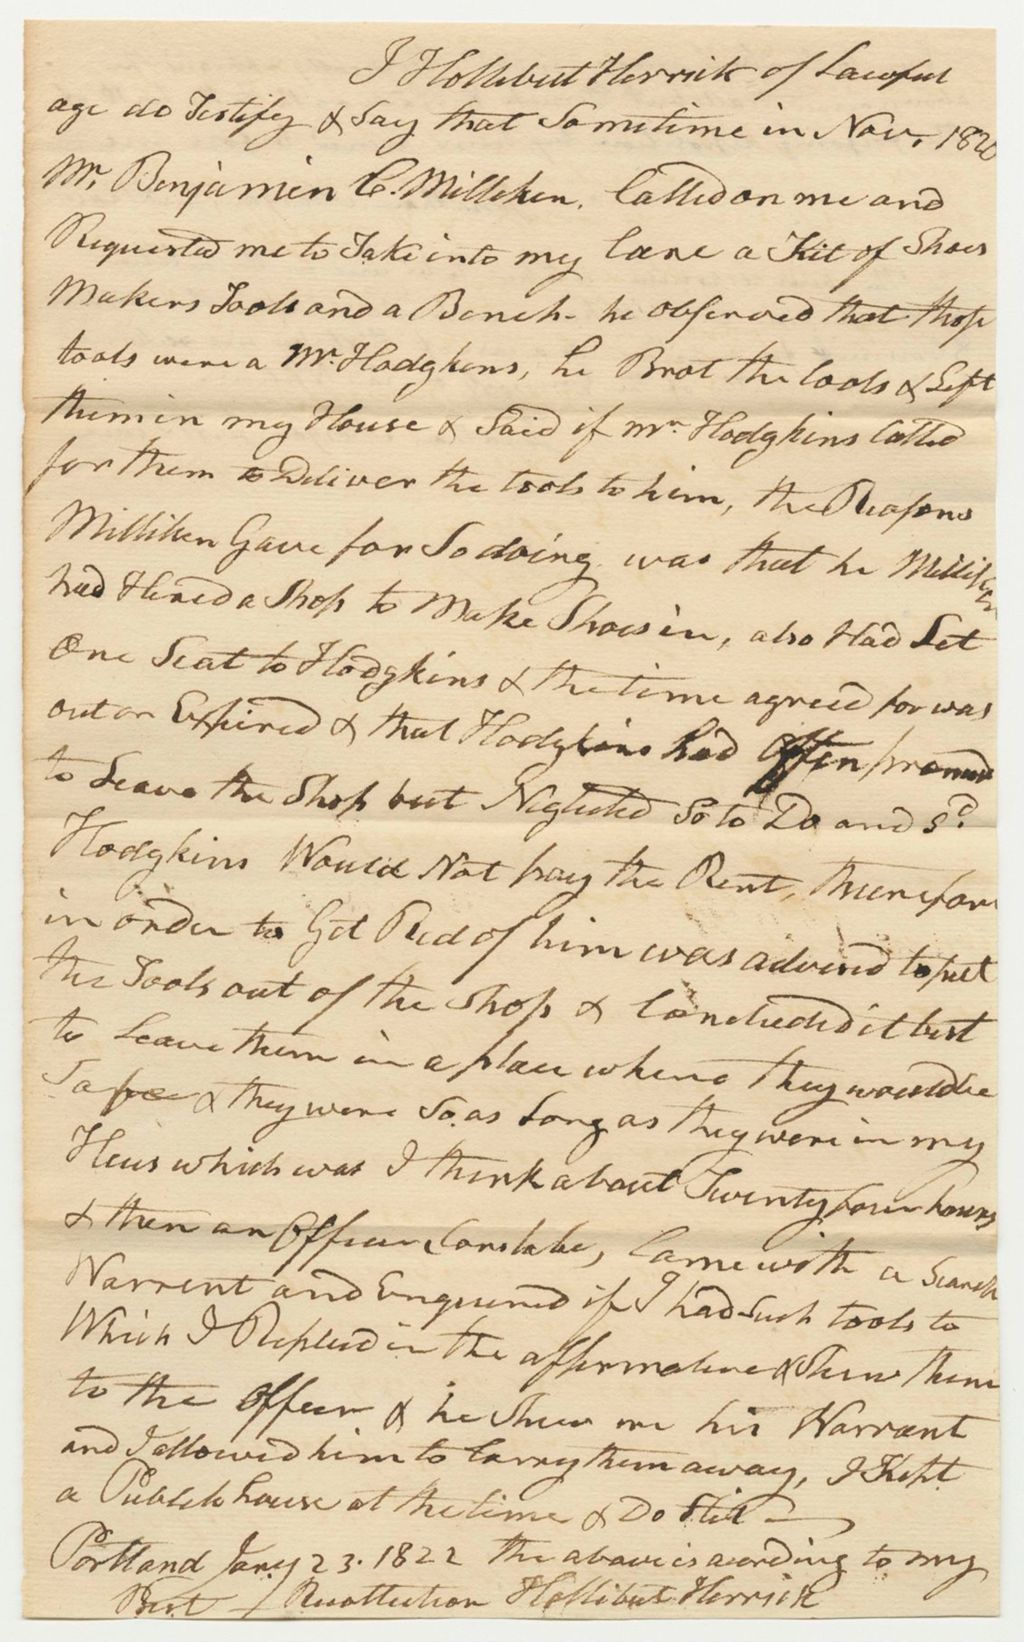 I Hollibut Herrick of Lawful
age do Testify & Say that Sometime in Nov. 1820
Mr. Benjamin C. Milliken. Called on me and
Requested me to Take into my Care a Kit of Shoes
Makers Tools and a Bench - he observed that those
tools were a Mr. Hodgkins, he Brot the tools & Left
them in my House & Said if Mr. Hodgkins Called
for them to Deliver the tools to him, the Reasons
Milliken Gave for So doing was that he Milliken
had Hired a Shop to Make Shoes in, also Had Let
One Seat to Hodgkins & the time agreed for was
out or Expired & that Hodgkins had often promised
to Leave the Shop but Neglected So to Do and sd.
Hodgkins Would Not pay the Rent, therefore
in order to Get Red of him was advised to put
the Tools out of the Shop & Concluded it best
to Leave them in a place where they would be
Safe & they were So as Long as they were in my
Hous which was I think about Twenty four hours
& then an Officer Constabe, Came with a Search
Warrent and Enquired if I had Such tools to
Which I Replied in the affirmative & Shew them
to the Officer & he Shew me his Warrant
and I allowed him to Carry them away, I Kept
a Publick house at the time & Do Still
Portland Jany 23. 1822 the above is acording to my
Best Recollection Hollibut Herrick